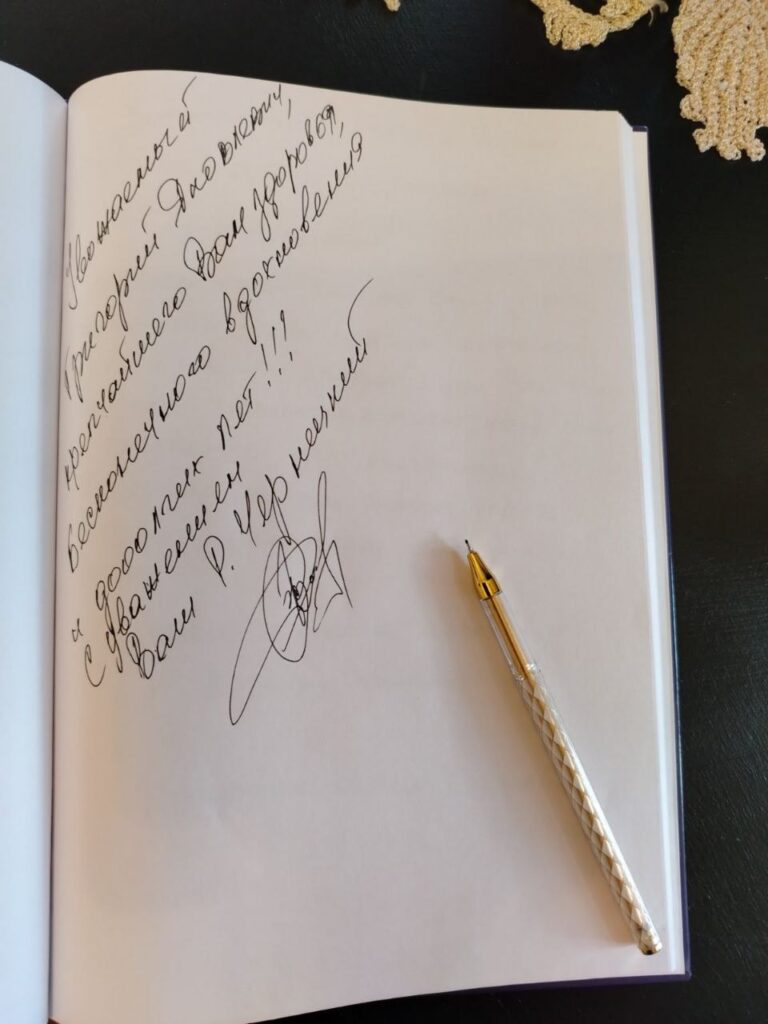 Уважаемый
Григорий Яковлевич,
крепчайшего Вам здоровья,
бесконечного вдохновения
и доооолгих лет!!!
С уважением
Ваш Р. Чернецкий